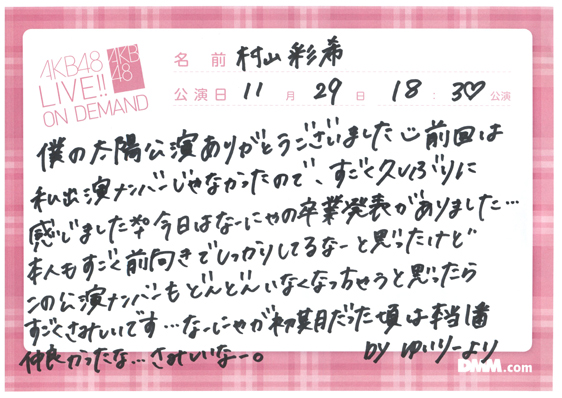 AKB48
LIVE!!
ON DEMAND
AKB
48
名前 村山彩希
公演日 11月29日 18:30公演
僕の太陽公演ありがとうございました 前回は
私出演ナンバーじゃなかったので、すごく久しぶりに
感じました 今日はなーにゃの卒業発表がありました…
本人もすごく前向きでしっかりしてるなーと思ったけど
この公演ナンバーもどんどんいなくなっちゃうと思ったら
すごくさみしいです…なーにゃが初期だった頃は本当1番
仲良かったな…さみしいなー。 by ゆいりーより
DMM.com